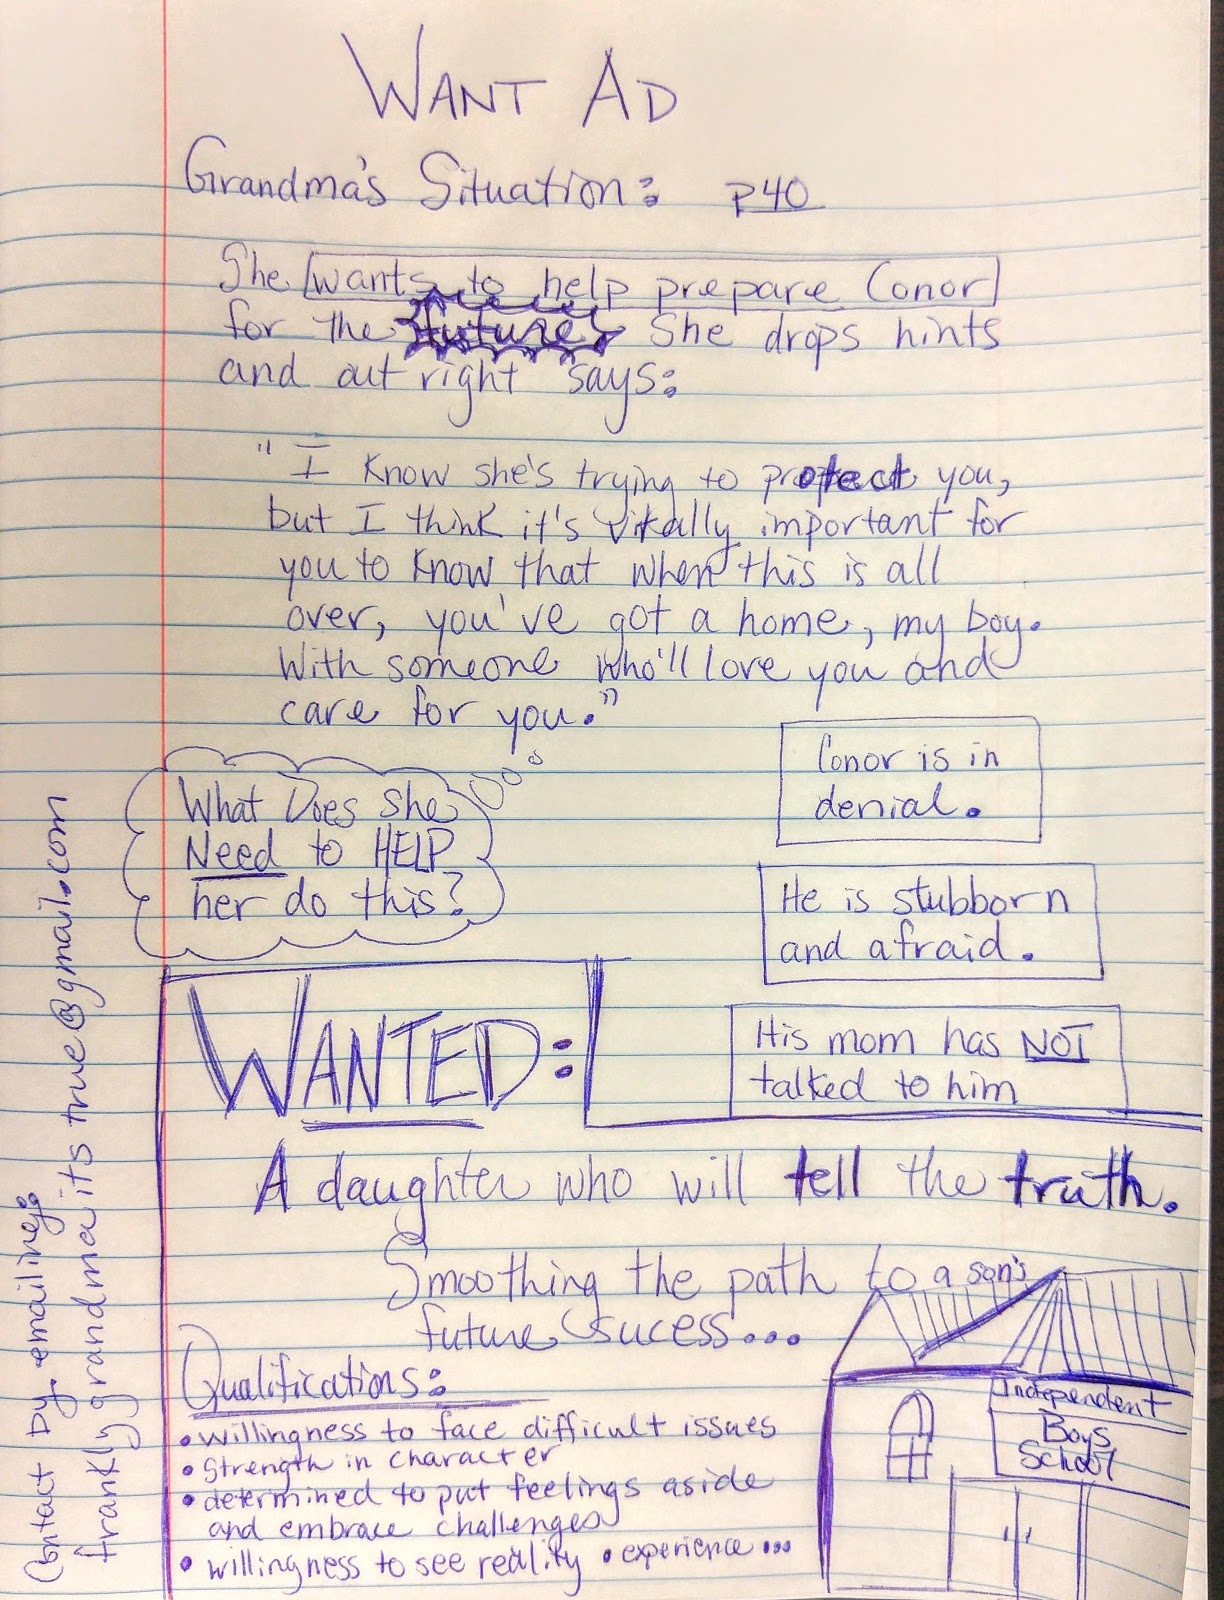 WANT AD
Grandma's Situation: P40
She wants to help prepare Conor
for the future. She drops hints
and out right says:
"I know she's trying to protect you,
but I think it's vitally important for
you to know that when this is all
over, you've got a home, my boy.
With someone who'll love you and
care for you."
What Does she
Need to HELP
her do this?
Conor is in
denial.
He is stubborn
and afraid.
His mom has NOT
talked to him
WANTED:
A daughter who will tell the truth.
Smoothing the path to a son's
future sucess...
Qualifications:
• willingness to face difficult issues
• strength in character
• determined to put feelings aside
and embrace challenges
• willingness to see reality • experience...
Independent
Boys
School
Contact by emailing:
franklygrandmaitstrue@gmail.com